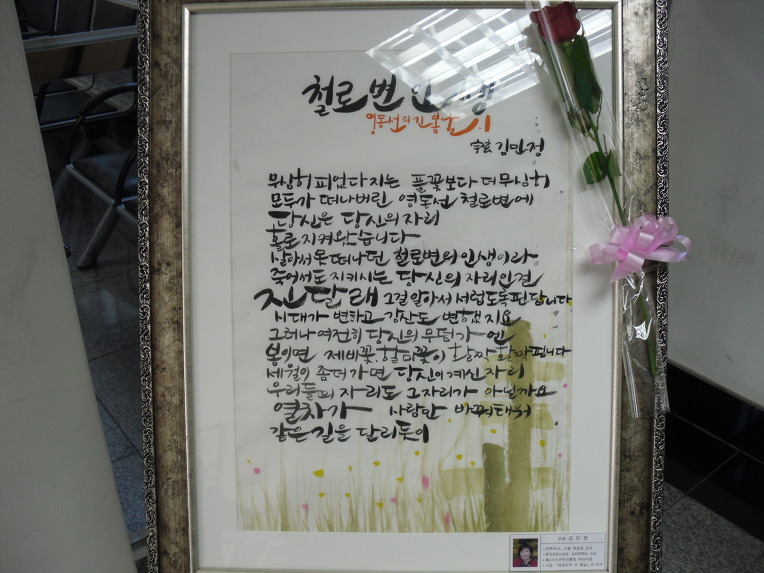 철로변 인생
영동선의 긴 봉화 1
宇玄 김민정
무심히 피었다 지는 풀꽃보다 더 무심히
모두가 떠나버린 영동선 철로변에
당신은 당신의 자리
홀로 지켜왔습니다
살아서 못 떠나던 철로변의 인생이라
죽어서도 지키시는 당신의 자리인걸
진달래 그걸 알아서 서럽도록 핀답니다
시대가 변하고 강산도 변했지요
그러나 여전히 당신의 무덤가엔
봄이면 제비꽃, 할미꽃이 활짝 활짝 핍니다
세월이 좀더 가면 당신이 계신 자리
우리들의 자리도 그 자리가 아닐까요
열차가 사람만 바꿔 태워
같은 길을 달리듯이